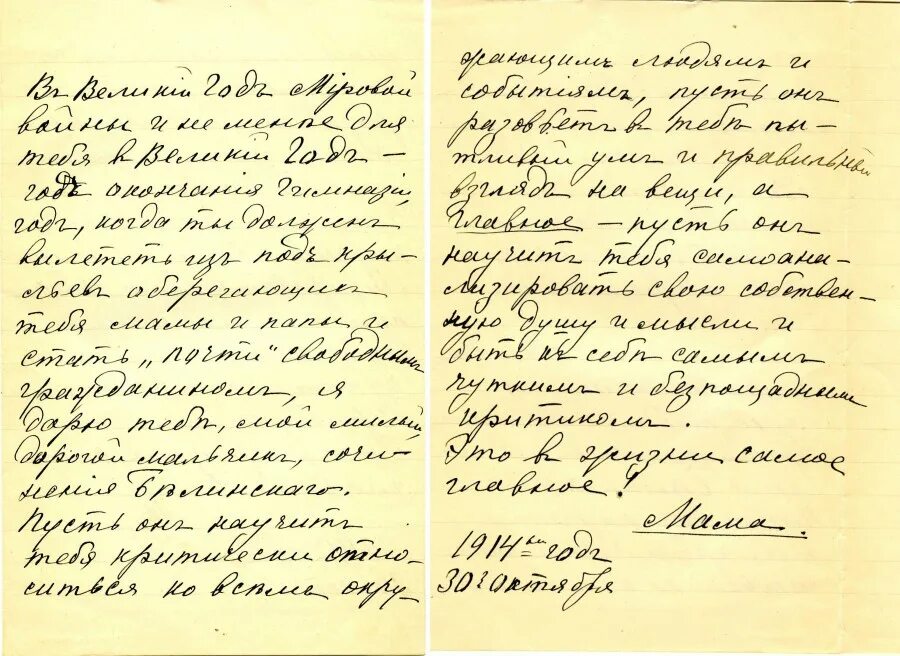 Въ Великій Годъ Міровой
войны и не менѣе для
тебя в Великій Годъ –
годъ окончанія Гимназіи,
годъ, когда ты долженъ
вылететь изъ подъ кры-
льев оберегающихъ
тебя мамы и папы и
стать „почти“ свободнымъ
гражданиномъ, я
дарю тебѣ, мой милый,
дорогой мальчикъ, сочи-
ненія Бѣлинскаго.
Пусть онъ научитъ
тебя критически отно-
ситься ко всѣмъ окру-
жающимъ людямъ и
событіямъ, пусть онъ
разовьетъ в тебѣ пы-
тливый умъ и правильный
взглядъ на вещи, а
главное – пусть онъ
научитъ тебя самоана-
лизировать свою собствен-
ную душу и мысли и
быть къ себѣ самымъ
чуткимъ и безпощаднымъ
критикомъ.
Это в жизни самое
главное!
Мама.
1914ый годъ
30го Октября